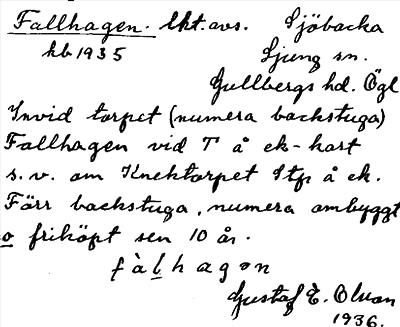 Fallhagen. lkt. avs. Sjöbacka
kb 1935 Ljung sn.
Gullbergs hd. Ögl
Invid torpet (numera backstuga)
Fallhagen vid T å ek-kart
s.v. om Knektorpet Stp å ek.
Förr backstuga, numera ombyggt
o friköpt sen 10 år.
fàlhagən
Gustaf E. Olson
1936.